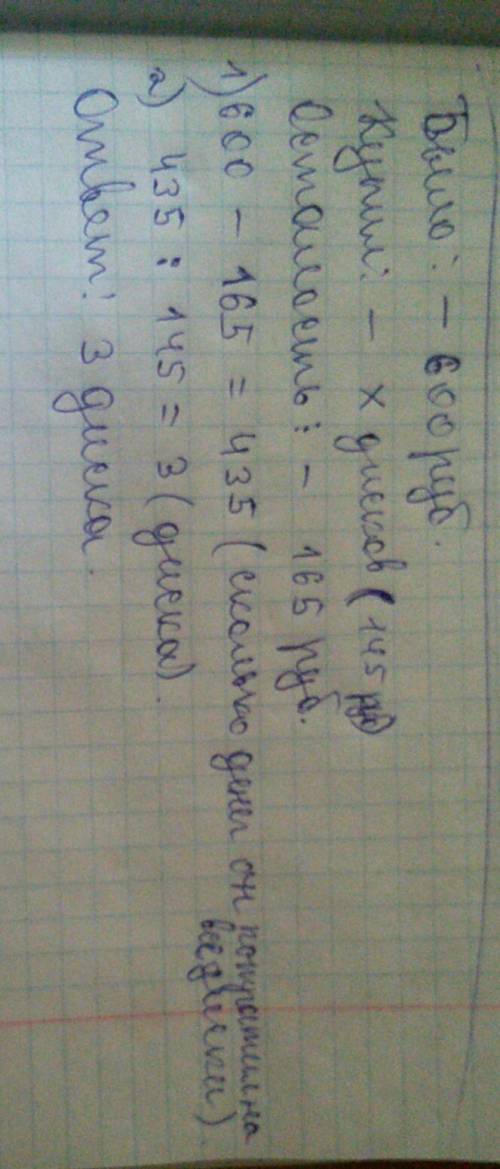 Было: - 600 руб.
Купил: - х дисков (145 руб)
Осталость: - 165 руб.
1) 600 - 165 = 435 (сколько денег он потратил на
все диски).
2) 435 : 145 = 3 (диска).
Ответ: 3 диска.